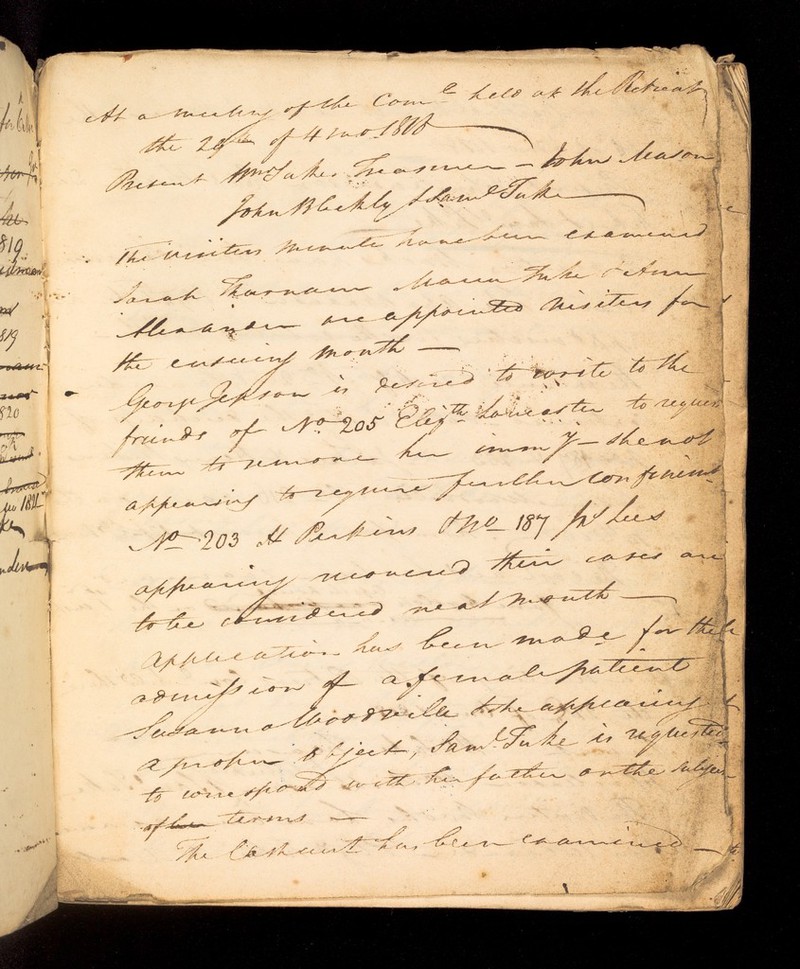 for
819
819
820
1821
At a meeting of the Com.ee held at the Retreat
the 20th of 4 mo. 1818
Present Wm Tuke Treasurer – John Mason
John Bleckly & Saml. Tuke
The visiters minute have been examined
Sarah Maria Tuke & Ann
Alexander are appointed Visiters for
the ensuing month —
George Jepson is desired to write to the
friends of No. 205 Elizth. Lancaster to request
them to remove her immy – she not
appearing to require further confinemt
No. 203 H Perkins & No 187 Jas Lees
appearing recovered their cases are
to be considered next month —
Application has been made for the
admission of a female patient
Susanna Woodville & she appearing
a proper object, Saml. Tuke is requested
to correspond with her father on the subject
of her terms —
The Cash acct. has been examined —